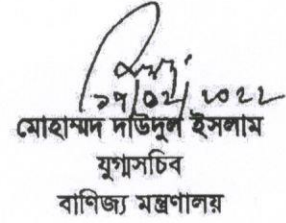 ১৭/০২/২০২২
মোহাম্মদ দাউদুল ইসলাম
যুগ্মসচিব
বাণিজ্য মন্ত্রণালয়